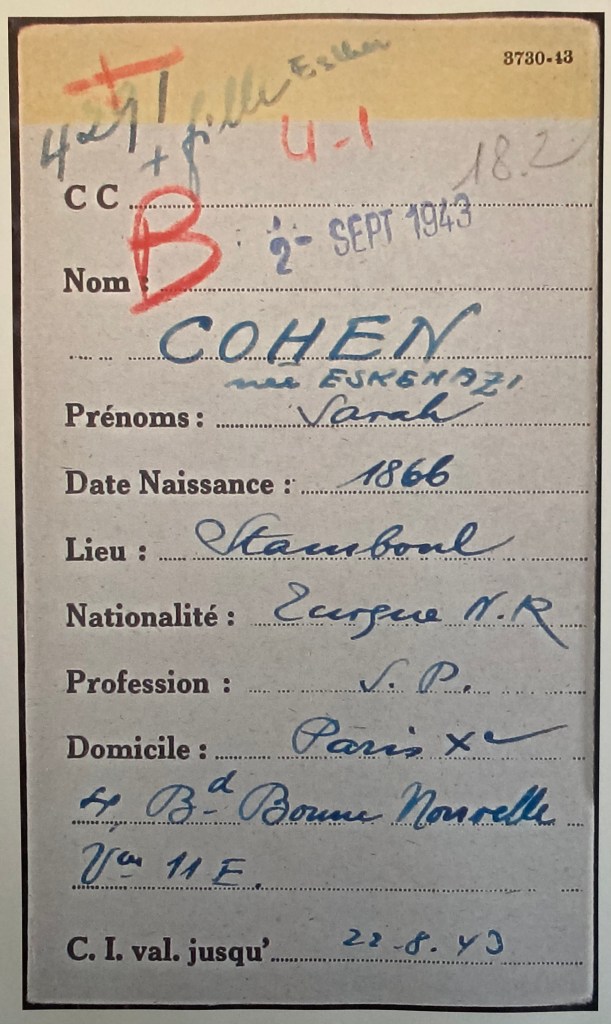 3730-43
4291
+ fille Esther
4-1
18.2
C C
B
2 - SEPT 1943
Nom :
COHEN
née ESKENAZI
Prénoms : Sarah
Date Naissance : 1866
Lieu : Stamboul
Nationalité : Turque N.R
Profession : S. P.
Domicile : Paris Xe
4, Bd Bonne Nouvelle
11 E.
C. I. val. jusqu' 22-8.43